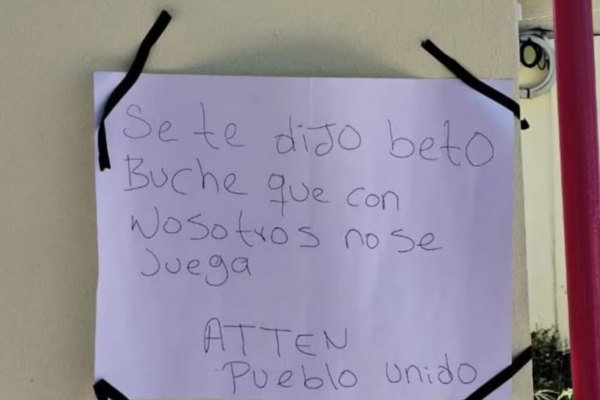 Se te dijo beto
Buche que con
Nosotros no se
Juega
ATTEN
Pueblo unido